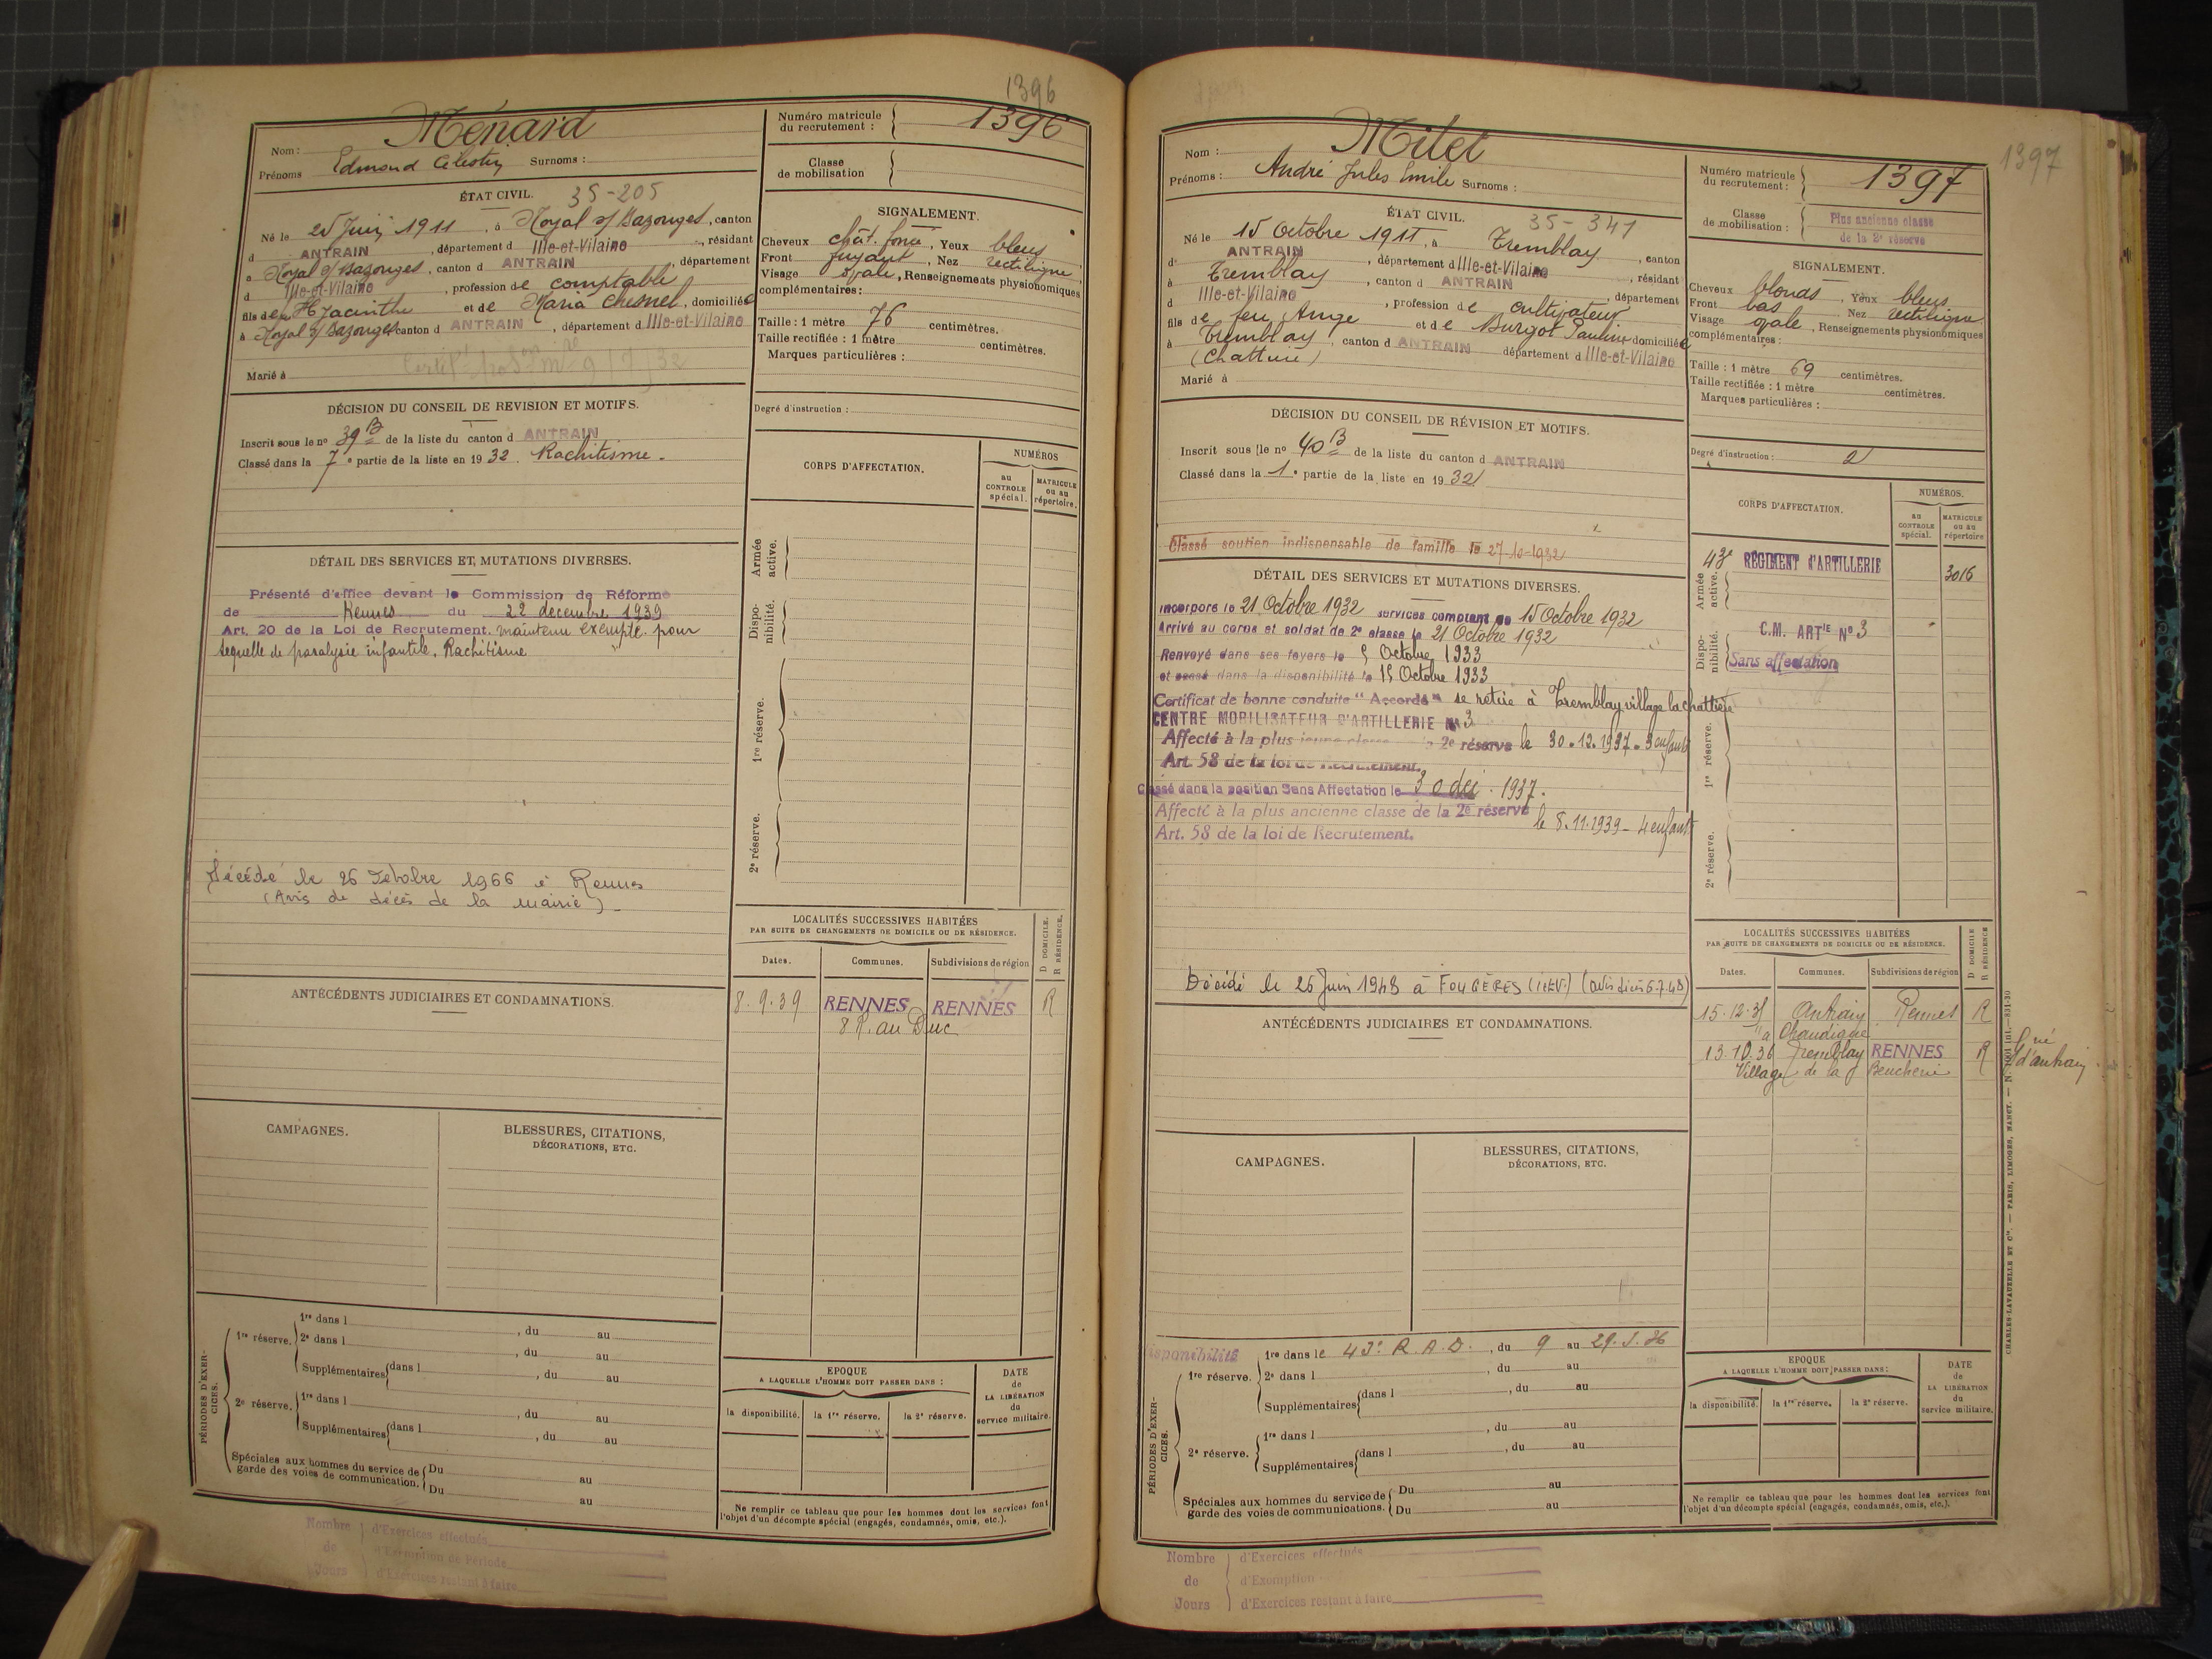 1396
Nom : Ménard
Prénoms Edmond Célestin Surnoms :
Numéro matricule du recrutement : 1396
Classe de mobilisation
ÉTAT CIVIL. 35-205
Né le 25 Juin 1911, à Noyal s/ Bazouges, canton
d ANTRAIN, département d Ille-et-Vilaine, résidant
à Noyal s/ Bazouges, canton d ANTRAIN, département
d Ille-et-Vilaine, profession de comptable
fils de Hyacinthe et de Maria Chesnel, domiciliés
à Noyal s/ Bazouges canton d ANTRAIN, département d Ille-et-Vilaine
Marié à
SIGNALEMENT.
Cheveux chât. foncé, Yeux bleus
Front fuyant, Nez rectiligne
Visage ovale, Renseignements physionomiques
complémentaires :
Taille : 1 mètre 76 centimètres.
Taille rectifiée : 1 mètre centimètres.
Marques particulières :
Degré d'instruction :
DÉCISION DU CONSEIL DE REVISION ET MOTIFS.
Inscrit sous le no 39 B de la liste du canton d ANTRAIN
Classé dans la 7e partie de la liste en 1932. Rachitisme.
CORPS D'AFFECTATION.
NUMÉROS
au CONTROLE spécial.
MATRICULE ou au répertoire.
Armée active.
Disponibilité.
1re réserve.
2e réserve.
DÉTAIL DES SERVICES ET MUTATIONS DIVERSES.
Présenté d'office devant la Commission de Réforme
de Rennes du 22 décembre 1939
Art. 20 de la Loi de Recrutement. maintenu exempté pour
sequelle de paralysie infantile. Rachitisme
Décédé le 26 Octobre 1966 à Rennes
(Avis de décès de la mairie)
LOCALITÉS SUCCESSIVES HABITÉES
PAR SUITE DE CHANGEMENTS DE DOMICILE OU DE RÉSIDENCE.
D DOMICILE.
R RÉSIDENCE.
Dates. Communes. Subdivisions de région
8.9.39 RENNES RENNES R
8 R. au Duc
ANTÉCÉDENTS JUDICIAIRES ET CONDAMNATIONS.
CAMPAGNES.
BLESSURES, CITATIONS,
DÉCORATIONS, ETC.
PÉRIODES D'EXERCICES.
1re réserve. 1re dans l , du au
2e dans l , du au
Supplémentaires dans l , du au
2e réserve. 1re dans l , du au
Supplémentaires dans l , du au
Spéciales aux hommes du service de garde des voies de communication. Du au
Du au
EPOQUE
A LAQUELLE L'HOMME DOIT PASSER DANS :
la disponibilité. la 1re réserve. la 2e réserve.
DATE de LA LIBÉRATION du service militaire.
Ne remplir ce tableau que pour les hommes dont les services font
l'objet d'un décompte spécial (engagés, condamnés, omis, etc.).
Nombre de Jours
d'Exercices effectués
d'Exemption de Période
d'Exercices restant à faire
1397
Nom : Milet
Prénoms : André Jules Emile Surnoms :
Numéro matricule du recrutement : 1397
Classe de mobilisation : Plus ancienne classe
de la 2e réserve
ÉTAT CIVIL. 35-341
Né le 15 Octobre 1911, à Tremblay, canton
d ANTRAIN, département d Ille-et-Vilaine, résidant
à Tremblay, canton d ANTRAIN, département
d Ille-et-Vilaine, profession de cultivateur
fils de feu Ange et de Burgot Pauline domiciliée
à Tremblay, canton d ANTRAIN département d Ille-et-Vilaine
Marié à
SIGNALEMENT.
Cheveux blonds, Yeux bleus
Front bas, Nez rectiligne
Visage ovale, Renseignements physionomiques
complémentaires :
Taille : 1 mètre 69 centimètres.
Taille rectifiée : 1 mètre centimètres.
Marques particulières :
Degré d'instruction : 2
DÉCISION DU CONSEIL DE RÉVISION ET MOTIFS.
Inscrit sous le no 40 B de la liste du canton d ANTRAIN
Classé dans la 1e partie de la liste en 1932
Classé soutien indispensable de famille le 27-10-1932
CORPS D'AFFECTATION.
NUMÉROS.
au CONTROLE spécial.
MATRICULE ou au répertoire
Armée active. 43e RÉGIMENT D'ARTILLERIE 3016
Disponibilité. C.M. ARTIE No 3
Sans affectation
1re réserve.
2e réserve.
DÉTAIL DES SERVICES ET MUTATIONS DIVERSES.
Incorporé le 21 Octobre 1932 services comptant du 15 Octobre 1932
Arrivé au corps et soldat de 2e classe le 21 Octobre 1932
Renvoyé dans ses foyers le 5 Octobre 1933
et passé dans la disponibilité le 15 Octobre 1933
Certificat de bonne conduite "Accordé" se retire à Tremblay village la chattière
CENTRE MOBILISATEUR D'ARTILLERIE No 3
Affecté à la plus jeune classe de la 2e réserve le 30.12.1937 - 3 enfants
Art. 58 de la loi de Recrutement.
Classé dans la position Sans Affectation le 30 dec. 1937.
Affecté à la plus ancienne classe de la 2e réserve le 8.11.1939 - 4 enfants
Art. 58 de la loi de Recrutement.
Décédé le 26 Juin 1948 à FOUGÈRES (I.&V.) (avis décès 6.7.48)
LOCALITÉS SUCCESSIVES HABITÉES
PAR SUITE DE CHANGEMENTS DE DOMICILE OU DE RÉSIDENCE.
D DOMICILE
R RÉSIDENCE
Dates. Communes. Subdivisions de région
15.12.35 Antrain Rennes R
13.10.36 Tremblay RENNES R
Village de la
d'antrain
ANTÉCÉDENTS JUDICIAIRES ET CONDAMNATIONS.
CAMPAGNES.
BLESSURES, CITATIONS,
DÉCORATIONS, ETC.
PÉRIODES D'EXERCICES.
disponibilité 1re dans le 43e R.A.D., du 9 au 29.
1re réserve. 2e dans l , du au
Supplémentaires dans l , du au
2e réserve. 1re dans l , du au
Supplémentaires dans l , du au
Spéciales aux hommes du service de garde des voies de communications. Du au
Du au
EPOQUE
A LAQUELLE L'HOMME DOIT PASSER DANS :
la disponibilité. la 1re réserve. la 2e réserve.
DATE de LA LIBÉRATION du service militaire.
Ne remplir ce tableau que pour les hommes dont les services font
l'objet d'un décompte spécial (engagés, condamnés, omis, etc.).
CHARLES-LAVAUZELLE ET Cie. — PARIS, LIMOGES, NANCY.
Nombre de Jours
d'Exercices effectués
d'Exemption
d'Exercices restant à faire